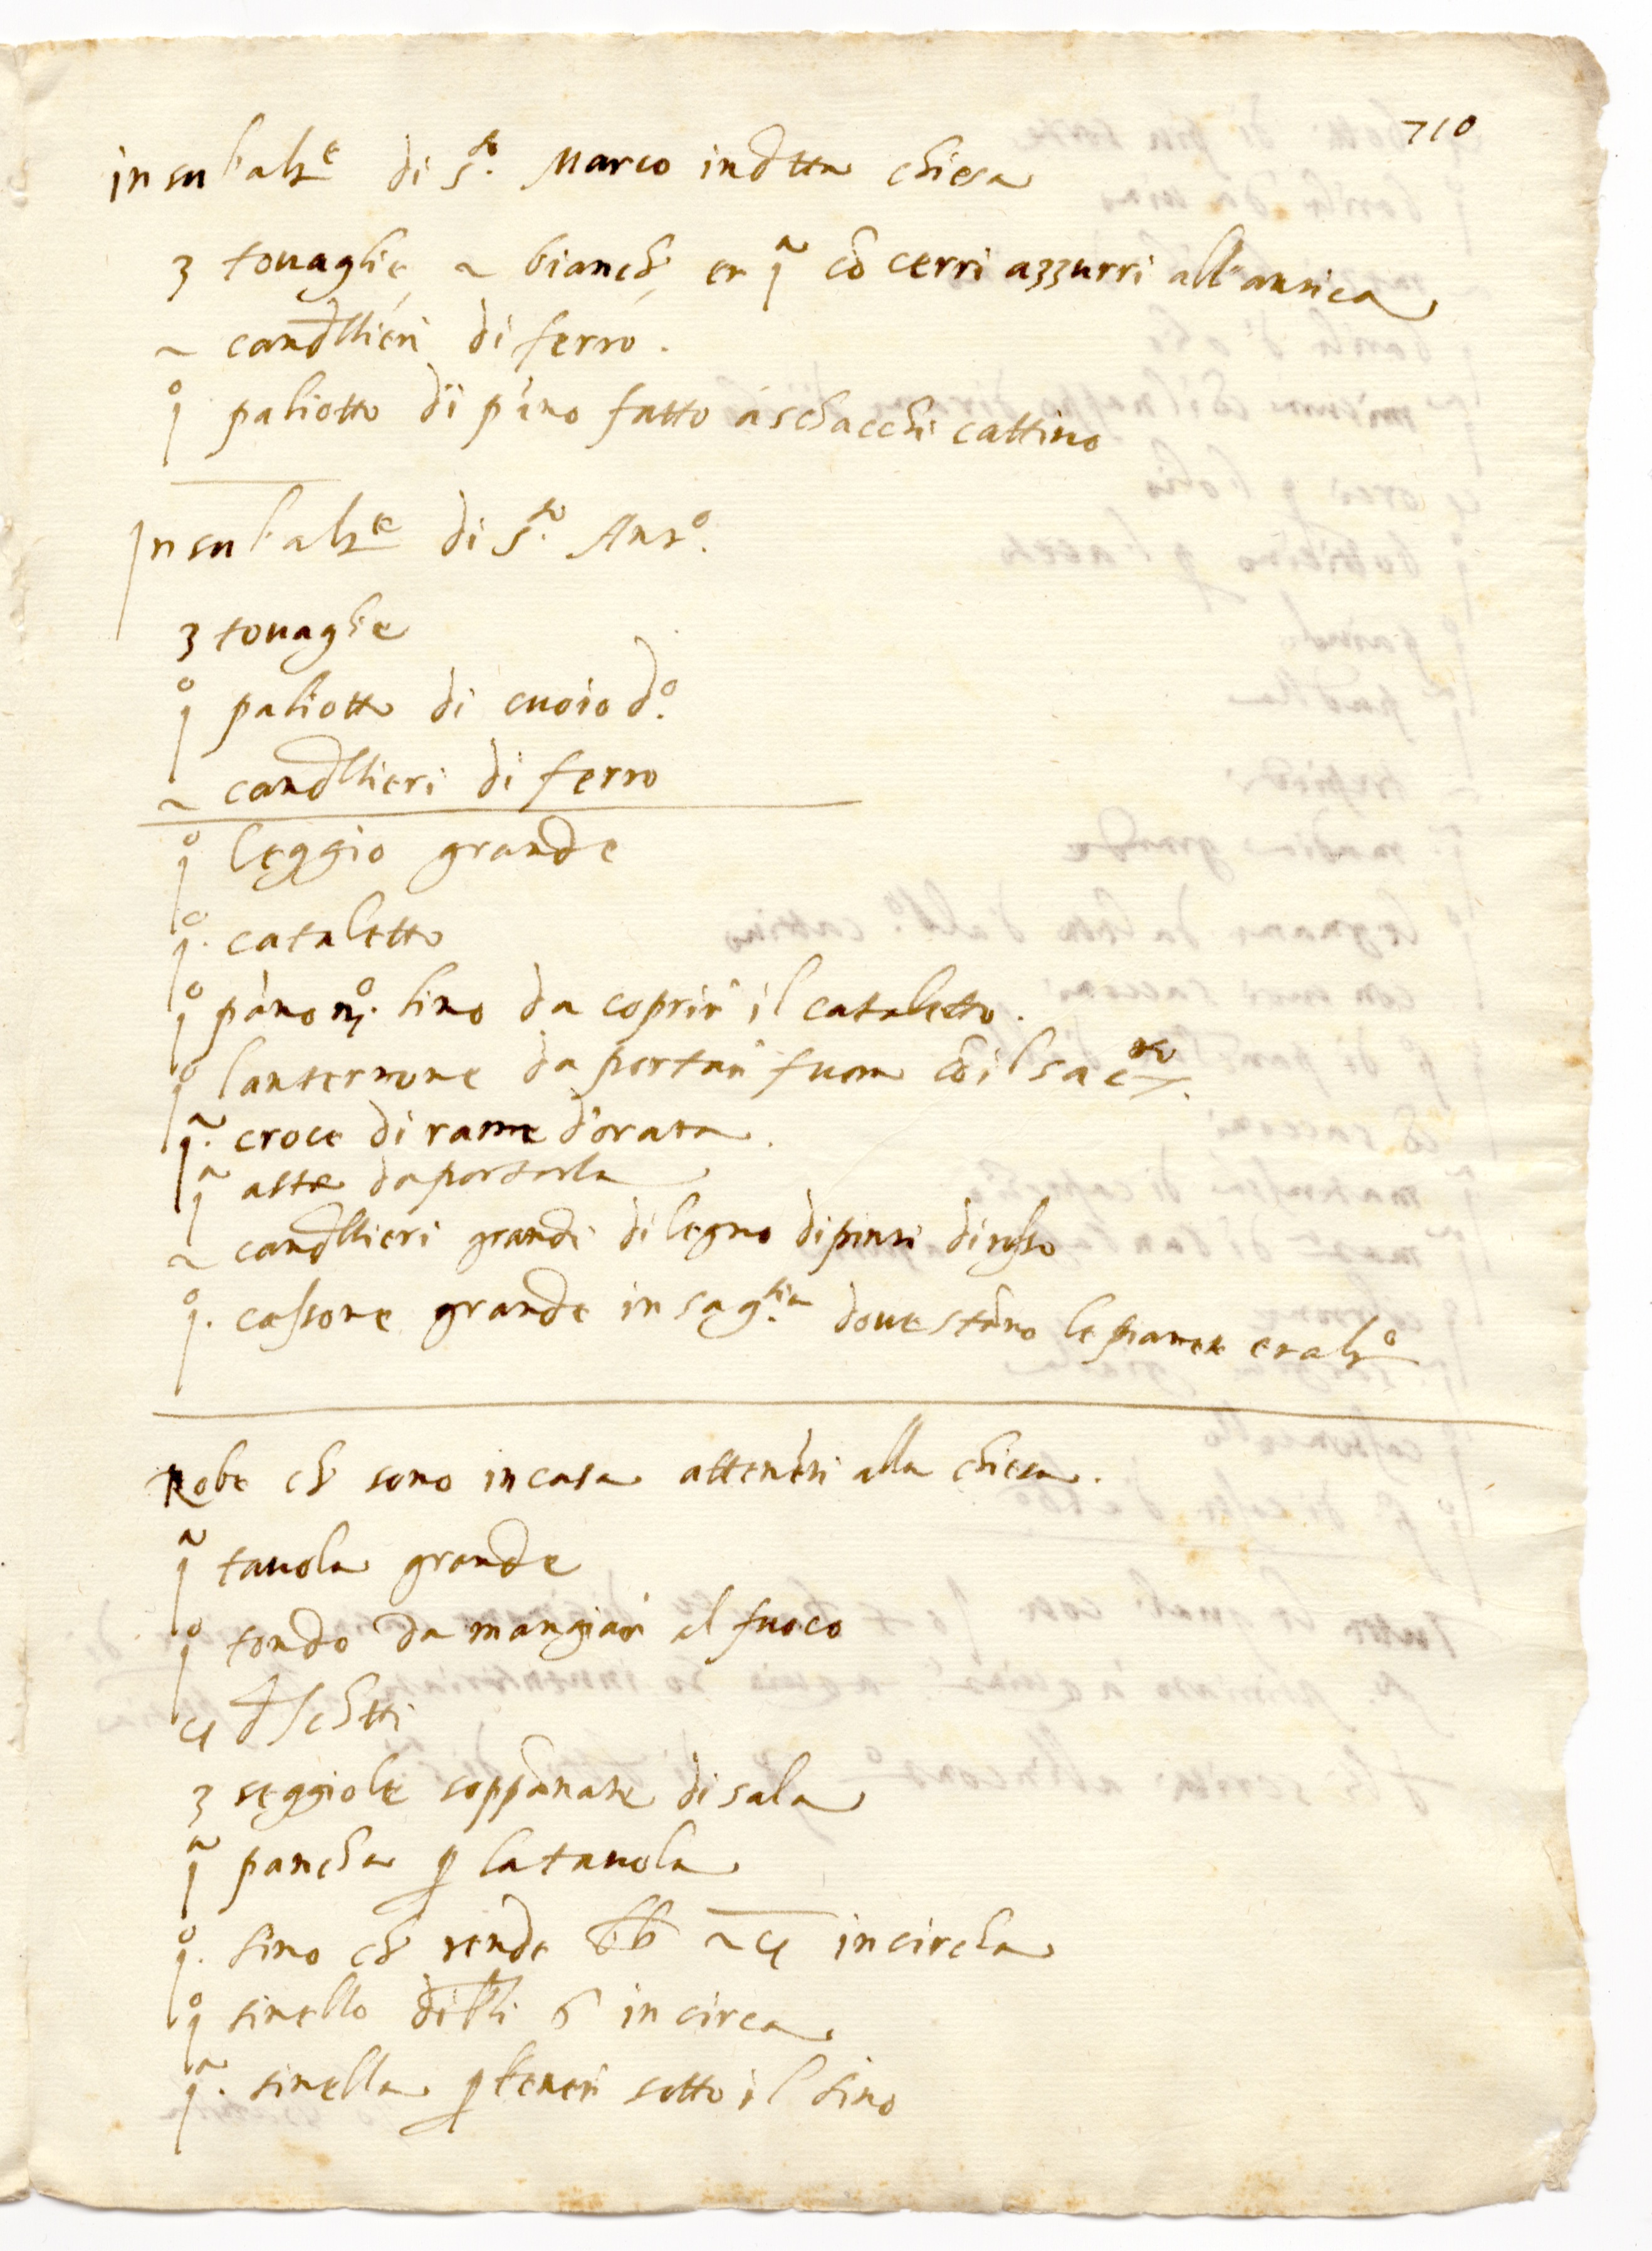 710
in su l'alt.e di s.to Marco in dtta chiesa
3 tovaglie 2 bianch, et 1a cō cerri azzurri all'antica
2 candllieri di ferro.
1o paliotto di pāno fatto à schacchi cattivo
In su l'alt.e di s.to Ant.o
3 tovaglie
1o paliotto di cuoio d.o
2 candllieri di ferro
1o leggio grande
1o cataletto
1o pāno n.o lino da coprir il cataletto.
1o lanternone da portar fuora cō il sac.to
1a croce di rame dorata.
1a aste da portarla
2 candllieri grandi di legno dipinti di rosso
1o cassone grande in sag.tia dove stāno le pianete et alt.o
Robe ch sono in casa attenēti alla chiesa.
1a tavola grande
1o tondo da mangiar al fuoco
4 dschtti
3 seggiole soppānate di sala
1a pancha p la tavola
1o tino ch tende bb 24 in circha
1o tinello di bli 6 in circa
1a tinella p tener sotto il tino